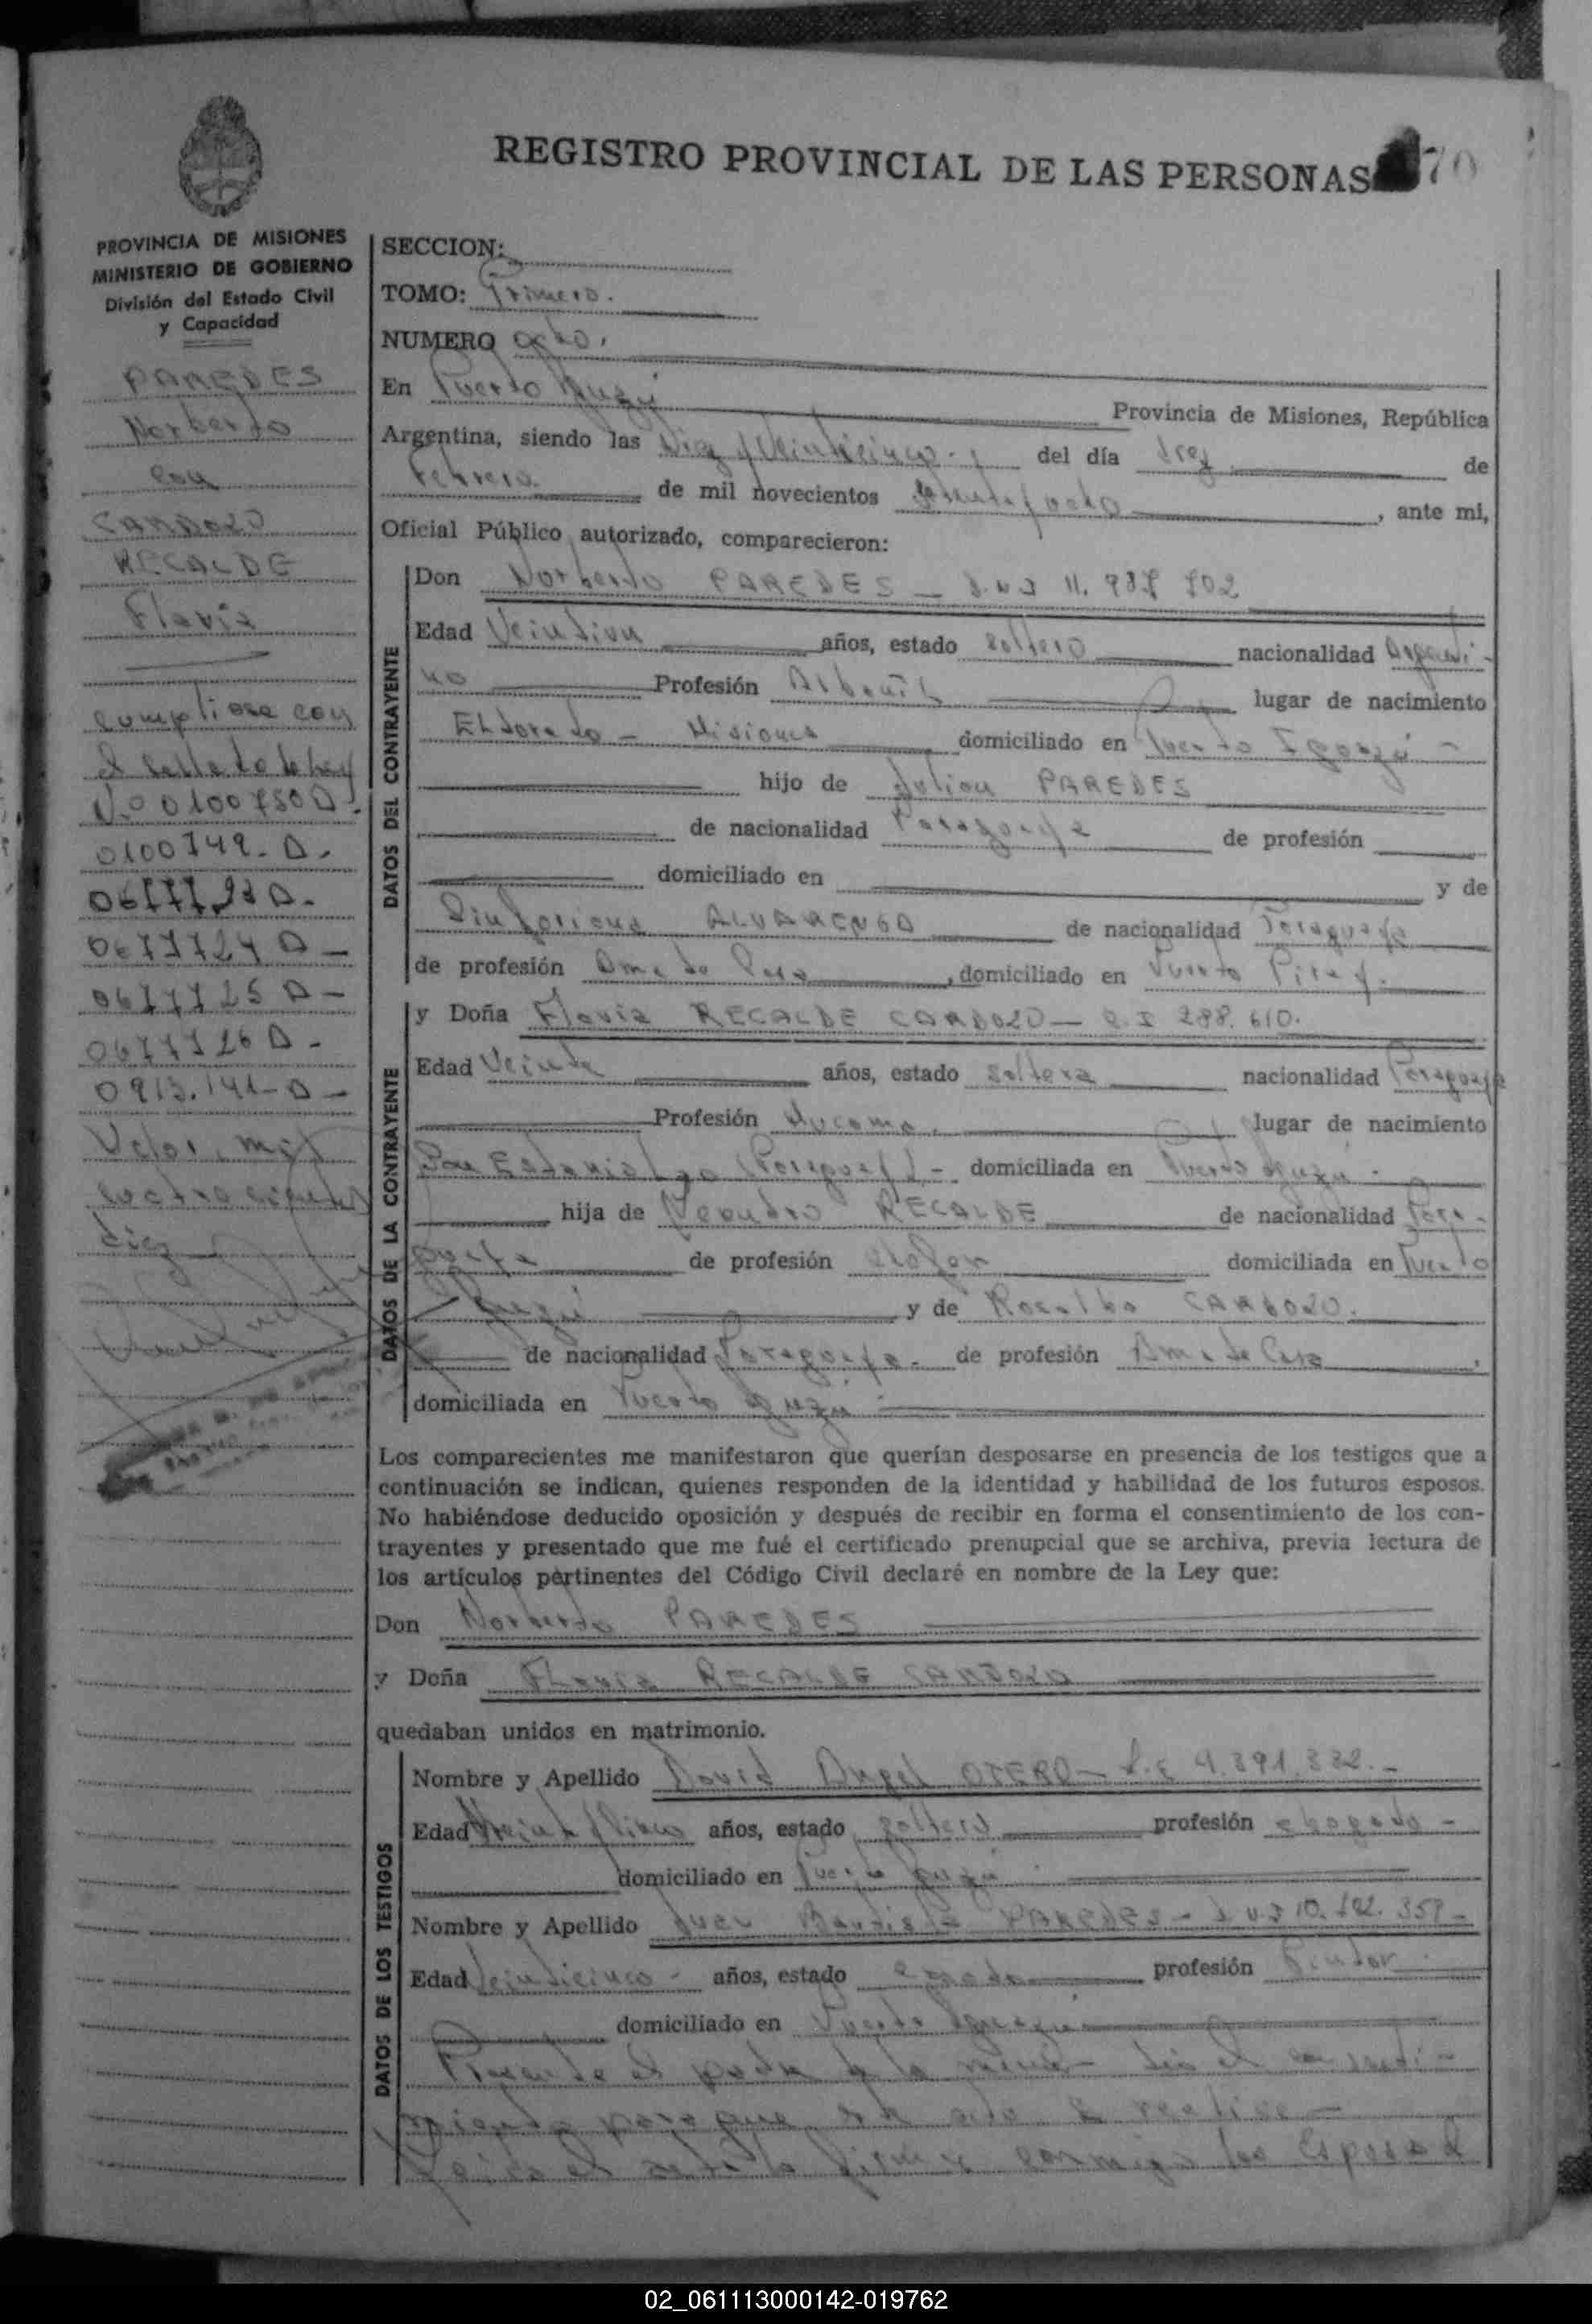 REGISTRO PROVINCIAL DE LAS PERSONAS 70
PROVINCIA DE MISIONES
MINISTERIO DE GOBIERNO
División del Estado Civil
y Capacidad
PAREDES
Norberto
con
CARDOZO
RECALDE
Flavia
cumpliose con
el sellado de ley
0100749-D.
0677724 D-
0677725 D-
0677726 D-
0913.141-D-
Valor, mil
cuatrocientos
diez
SECCION:
TOMO: Primero.
NUMERO ocho.
En Puerto Iguazú Provincia de Misiones, República
Argentina, siendo las Diez y Veinticinco del día tres de
Febrero de mil novecientos ochenta, ante mi,
Oficial Público autorizado, comparecieron:
DATOS DEL CONTRAYENTE
Don Norberto PAREDES - D.N.I
Edad años, estado soltero nacionalidad Argenti-
no Profesión Albañil lugar de nacimiento
Eldorado - Misiones domiciliado en Puerto Iguazú -
hijo de Julian PAREDES
de nacionalidad Paraguaya de profesión
domiciliado en y de
Sinforiana ALVARENGA de nacionalidad Paraguaya
de profesión Ama de Casa, domiciliado en Puerto Piray.
DATOS DE LA CONTRAYENTE
y Doña Flavia RECALDE CARDOZO - C.I 288.610.
Edad Veinte años, estado soltera nacionalidad Paraguaya
Profesión lugar de nacimiento
San Estanislao (Paraguay) - domiciliada en Puerto Iguazú.
hija de RECALDE de nacionalidad Para-
guaya de profesión chofer domiciliada en Puerto
Iguazú y de Rosalba CARDOZO.
de nacionalidad Paraguaya. de profesión Ama de Casa,
domiciliada en Puerto Iguazú
Los comparecientes me manifestaron que querían desposarse en presencia de los testigos que a
continuación se indican, quienes responden de la identidad y habilidad de los futuros esposos.
No habiéndose deducido oposición y después de recibir en forma el consentimiento de los con-
trayentes y presentado que me fué el certificado prenupcial que se archiva, previa lectura de
los artículos pertinentes del Código Civil declaré en nombre de la Ley que:
Don Norberto PAREDES
y Doña Flavia RECALDE CARDOZO
quedaban unidos en matrimonio.
DATOS DE LOS TESTIGOS
Nombre y Apellido David Angel OTERO - L.E 4.391.332.-
Edad años, estado soltero profesión abogado -
domiciliado en Puerto Iguazú
Nombre y Apellido Juan Bautista PAREDES - D.N.I
Edad Veinticinco - años, estado casado profesión Pintor.
domiciliado en Puerto Iguazú
Presente el padre de la menor dió el consenti-
miento para que el acto se realice -
Leida el acta la firman conmigo los Esposos
02_061113000142-019762